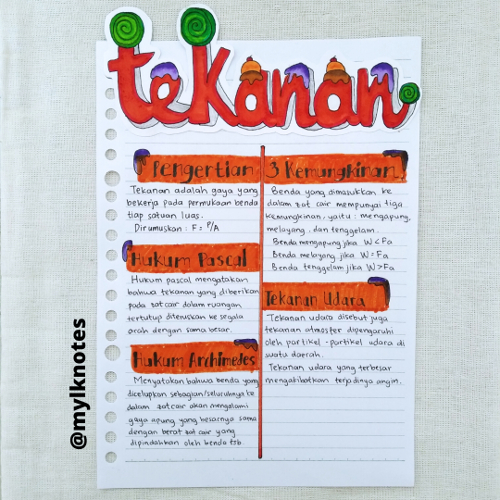 tekanan
Pengertian
Tekanan adalah gaya yang
bekerja pada permukaan benda
tiap satuan luas.
Dirumuskan : F = P/A
Hukum Pascal
Hukum pascal mengatakan
bahwa tekanan yang diberikan
pada zat cair dalam ruangan
tertutup diteruskan ke segala
arah dengan sama besar.
Hukum Archimedes
Menyatakan bahwa benda yang
dicelupkan sebagian/seluruhnya ke
dalam zat cair akan mengalami
gaya apung yang besarnya sama
dengan berat zat cair yang
dipindahkan oleh benda tsb
3 Kemungkinan
Benda yang dimasukkan ke
dalam zat cair mempunyai tiga
kemungkinan, yaitu : mengapung,
melayang, dan tenggelam.
Benda mengapung jika W < Fa
Benda melayang jika W = Fa
Benda tenggelam jika W > Fa
Tekanan Udara
Tekanan udara disebut juga
tekanan atmosfer dipengaruhi
oleh partikel-partikel udara di
suatu daerah.
Tekanan udara yang terbesar
mengakibatkan terjadinya angin.
@mylknotes